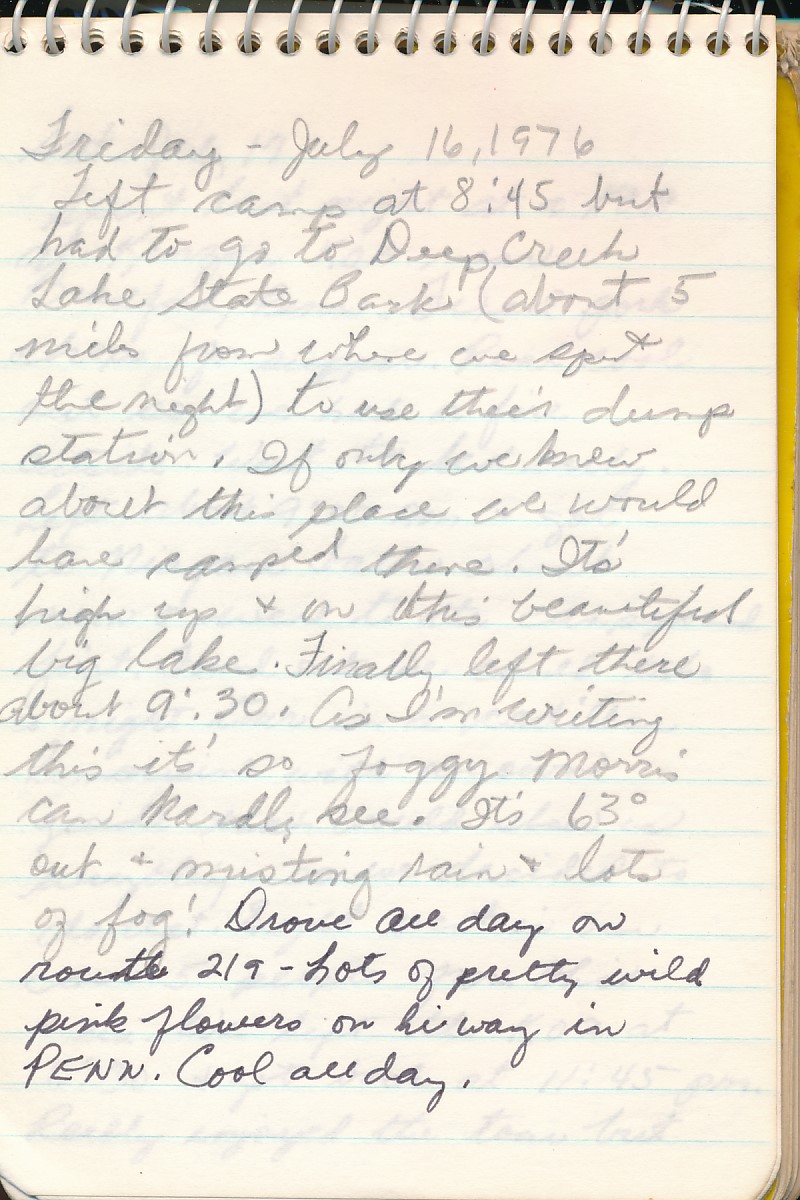 Friday - July 16, 1976
Left camp at 8:45 but
had to go to Deep Creek
Lake State Park (about 5
miles from where we spent
the night) to use their dump
station. If only we knew
about this place we would
have camped there. It's
high up & on this beautiful
big lake. Finally left there
about 9:30. As I'm writing
this it's so foggy Morris
can hardly see. It's 63°
out & misting rain & lots
of fog! Drove all day on
route 219 - Lots of pretty wild
pink flowers on hiway in
PENN. Cool all day.